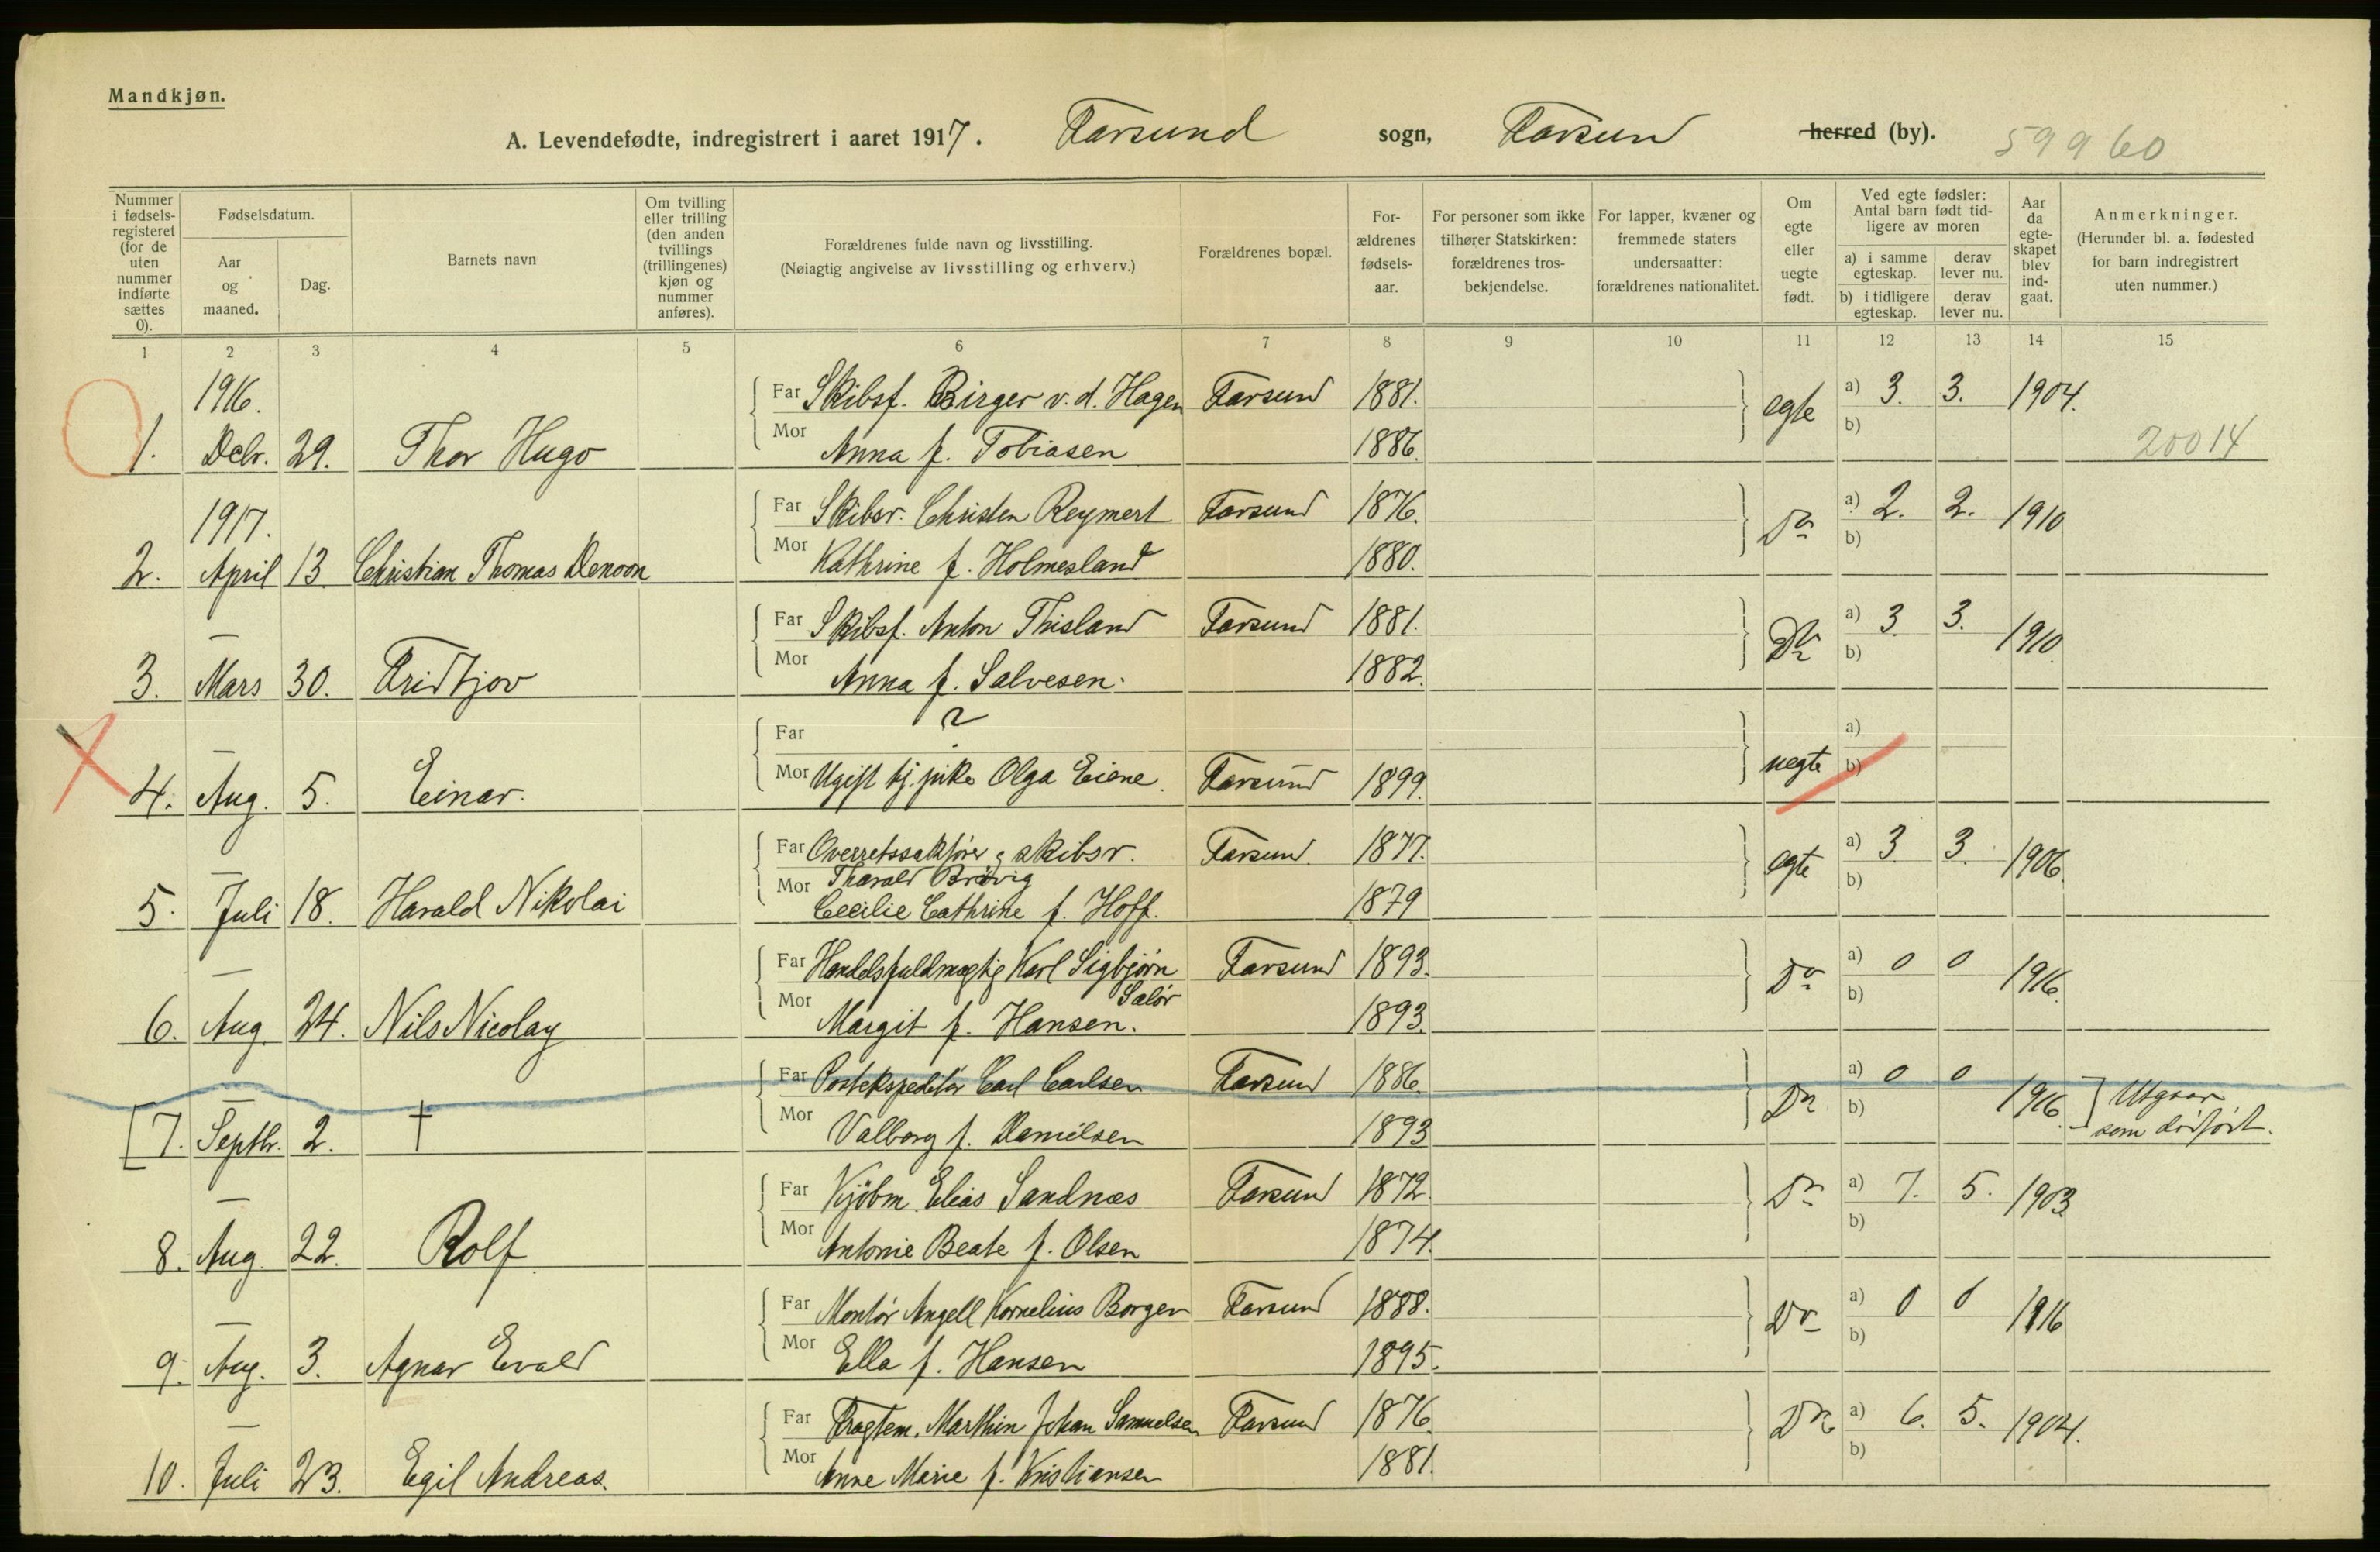 Mandkjøn.
A. Levendefødte, indregistrert i aaret 1917. Farsund sogn, Farsund herred (by). 59960
Nummer i fødselsregisteret (for de uten nummer indførte sættes 0).
Fødselsdatum.
Aar og maaned.
Dag.
Barnets navn
Om tvilling eller trilling (den anden tvillings (trillingenes) kjøn og nummer anføres).
Forældrenes fulde navn og livsstilling.
(Nøiagtig angivelse av livsstilling og erhverv.)
Forældrenes bopæl.
Forældrenes fødselsaar.
For personer som ikke tilhører Statskirken: forældrenes trosbekjendelse.
For lapper, kvæner og fremmede staters undersaatter: forældrenes nationalitet.
Om egte eller uegte født.
Ved egte fødsler: Antal barn født tidligere av moren
a) i samme egteskap.
derav lever nu.
b) i tidligere egteskap.
derav lever nu.
Aar da egteskapet blev indgaat.
Anmerkninger.
(Herunder bl. a. fødested for barn indregistrert uten nummer.)
1 2 3 4 5 6 7 8 9 10 11 12 13 14 15
1916.
Far Skibsf. Birger v. d. Hagen Farsund 1881. egte a) 3. 3. 1904.
1. Decbr. 29. Thor Hugo Mor Anna f. Tobiasen 1886. b) 20014
1917.
Far Skibsr. Christen Reymert Farsund 1876. Do a) 2. 2. 1910
2. April 13 Christian Thomas Denoon Mor Kathrine f. Holmesland 1880. b)
Far Skibsf. Anton Thisland Farsund 1881. Do a) 3. 3. 1910
3. — Mars 30. Fridtjov Mor Anna f. Salvesen. 1882. b)
Far ? a)
4. — Aug. 5. Einar. Mor Ugift tj. pike Olga Eiene. Farsund 1899. uegte b)
Far Overretssakfører & skibsr. Farsund 1877. egte a) 3 3. 1906.
Tharald Brøvig
5. — Juli 18. Harald Nikolai Mor Cecilie Cathrine f. Hoff. 1879 b)
Far Handelsfuldmægtig Karl Sigbjørn Farsund 1893. Do a) 0 0 1916.
Salør
6. — Aug. 24. Nils Nicolay Mor Margit f. Hansen. 1893. b)
Far Postekspeditør Carl Carlsen Farsund 1886. Do a) 0 0 1916. ] Utgaar
7. — Septbr. 2. † Mor Valborg f. Danielsen 1893 b) som dødfødt.
Far Kjøbm. Elias Sandnæs Farsund 1872. Do a) 7. 5. 1903.
8. — Aug. 22. Rolf Mor Antonie Beate f. Olsen 1874. b)
Far Montør Angell Kornelius Borgen Farsund 1888. Do a) 0 0 1916
9. — Aug. 3. Agnar Evald Mor Ella f. Hansen 1895. b)
Far Fragtem. Marthin Johan Samuelsen Farsund 1876. Do a) 6. 5. 1904.
10. — Juli 23. Egil Andreas. Mor Anne Marie f. Kristiansen 1881. b)